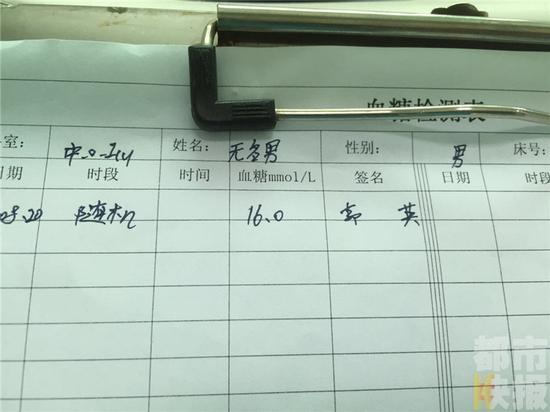 血糖检测表
室: 中心ICU 姓名: 无名男 性别: 男 床号:
日期 时段 时间 血糖mmol/L 签名 日期 时段
08.20 随机 16.0 郭英
都市快报